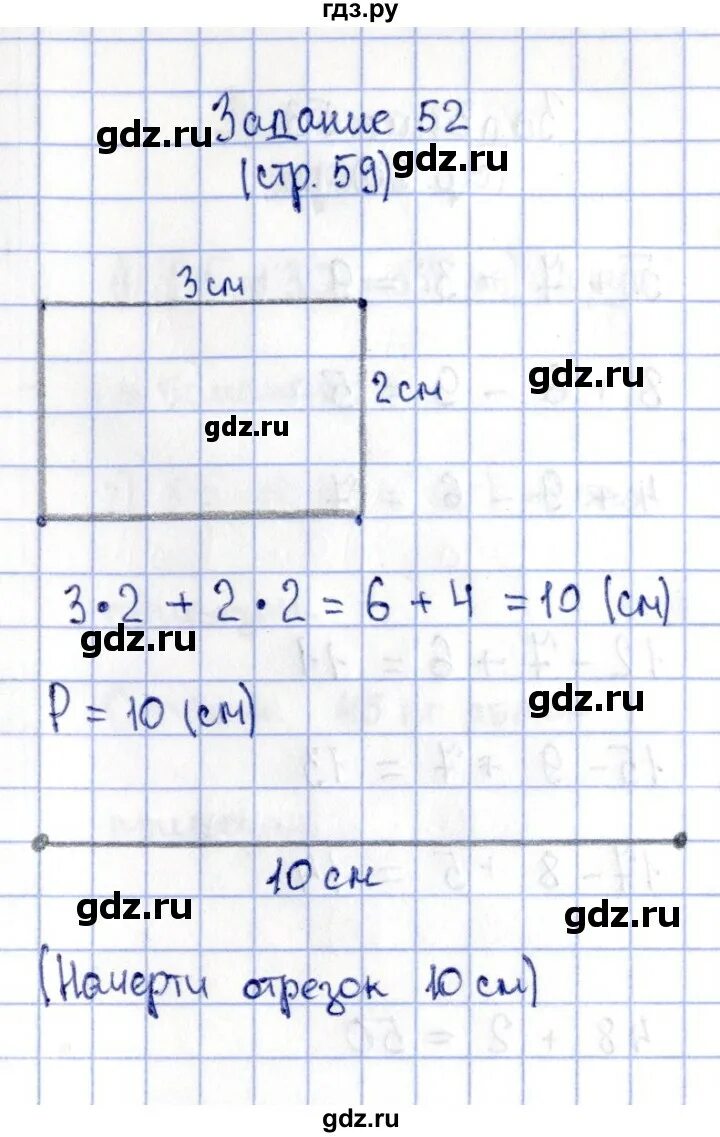 гдз.ру
Задание 52
gdz.ru
gdz.ru
(стр. 59)
3 см
2 см
gdz.ru
gdz.ru
3 • 2 + 2 • 2 = 6 + 4 = 10 (см)
gdz.ru
P = 10 (см)
gdz.ru
10 см
gdz.ru
gdz.ru
(Начерти отрезок 10 см)
48 + 2 = 50
gdz.ru